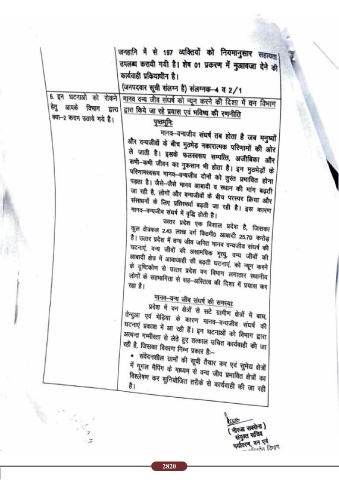 जनहानि में से 197 व्यक्तियों को नियमानुसार सहायता
उपलब्ध करायी गयी है। शेष 01 प्रकरण में मुआवजा देने की
कार्यवाही प्रक्रियाधीन है।
(जनपदवार सूची संलग्न है) संलग्नक-4 व 2/1
6. इन घटनाओं को रोकने
हेतु आपके विभाग द्वारा
क्या-2 कदम उठाये गये है।
मानव वन्य जीव संघर्ष को न्यून करने की दिशा में वन विभाग
द्वारा किये जा रहे प्रयास एवं भविष्य की रणनीति
पृष्ठभूमिः
मानव-वन्यजीव संघर्ष तब होता है जब मनुष्यों
और वन्यजीवों के बीच मुठभेड़ नकारात्मक परिणामों की ओर
ले जाती है। इसके फलस्वरूप सम्पत्ति, अजीविका और
कभी-कभी जीवन का नुकसान भी होता है। इन मुठभेड़ों के
परिणामस्वरूप मानव-वन्यजीव दोनों को तुरंत प्रभावित होना
पड़ता है। जैसे-जैसे मानव आबादी व स्थान की मांग बढ़ती
जा रही है, लोगों और वन्यजीवों के बीच परस्पर क्रिया और
संसाधनों के लिए प्रतिस्पर्धा बढ़ती जा रही है। इस कारण
मानव-वन्यजीव संघर्ष में वृद्धि होती है।
उत्तर प्रदेश एक विशाल प्रदेश है, जिसका
कुल क्षेत्रफल 2.43 लाख वर्ग कि०मी० आबादी 25.70 करोड़
है। उत्तर प्रदेश में वन्य जीव जनित मानव वन्यजीव संघर्ष की
घटनाएं, वन्य जीवों की असामयिक मृत्यु, वन्य जीवों की
आबादी क्षेत्र में आवाजाही की बढ़ती घटनाएं, को न्यून करने
के दृष्टिकोण से उत्तर प्रदेश वन विभाग लगातार स्थानीय
लोगों के सहभागिता से सह-अस्तित्व की दिशा में प्रयास कर
रहा है।
मानव-वन्य जीव संघर्ष की समस्या
प्रदेश में वन क्षेत्रों से सटे ग्रामीण क्षेत्रों में बाघ,
तेन्दुआ एवं भेड़िया के कारण मानव-वन्यजीव संघर्ष की
घटनाएं प्रकाश में आ रही है। इन घटनाओं को विभाग द्वारा
अत्यन्त गम्भीरता से लेते हुए तत्काल उचित कार्यवाही की जा
रही है, जिसका विवरण निम्न प्रकार है:-
• संवेदनशील ग्रामों की सूची तैयार कर एवं सुभेद्य क्षेत्रों
में गूगल मैपिंग के माध्यम से वन्य जीव प्रभावित क्षेत्रों का
विश्लेषण कर सुनियोजित तरीके से कार्यवाही की जा रही
है।
(नीरजा सक्सेना)
संयुक्त सचिव
पर्यावरण, वन एवं
विभाग
2820